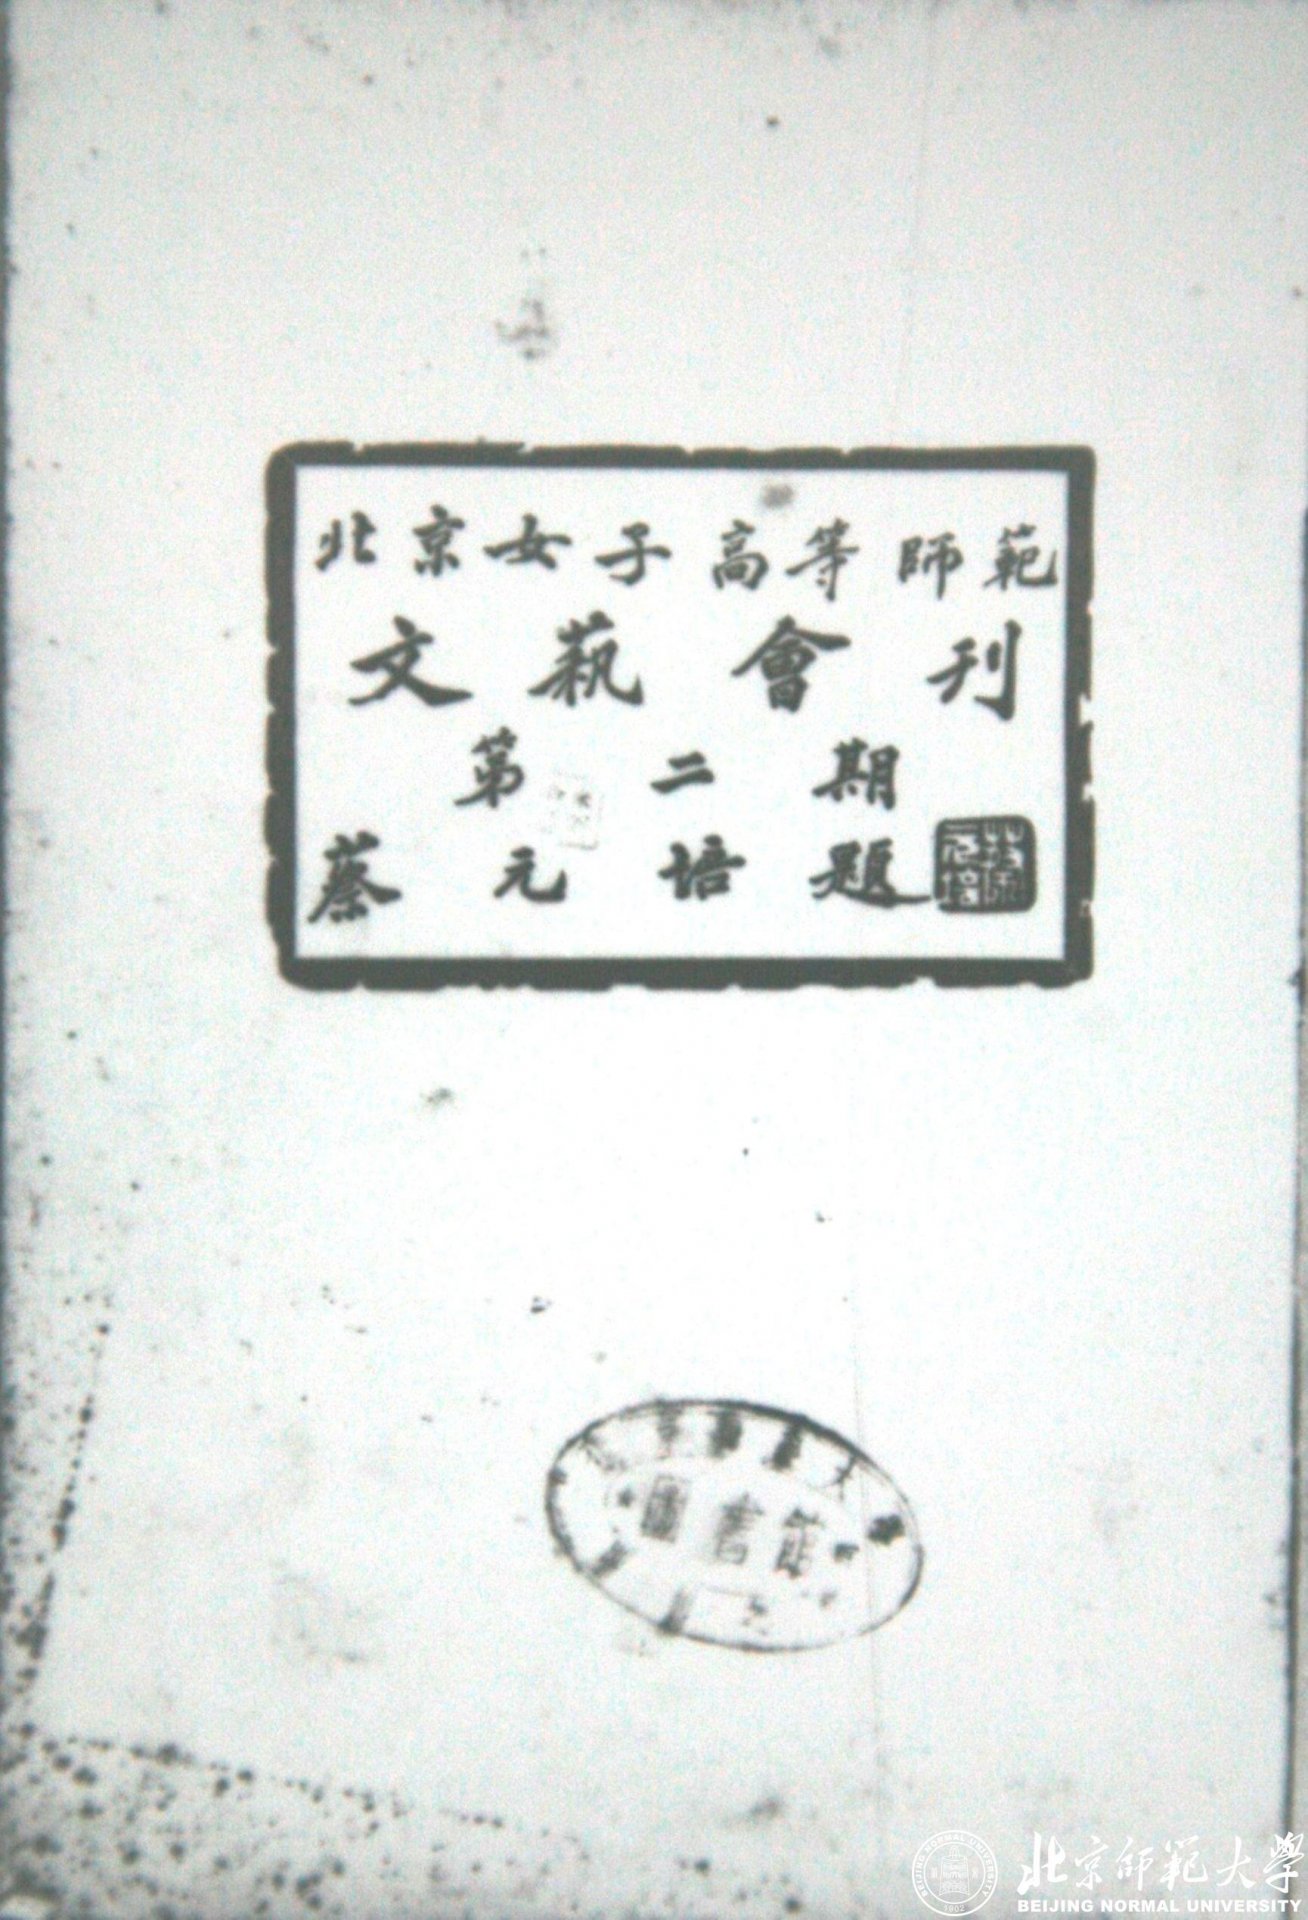 北京女子高等師範
文藝會刊
第二期
蔡元培題
蔡元培
圖書館
北京師範大學
BEIJING NORMAL UNIVERSITY